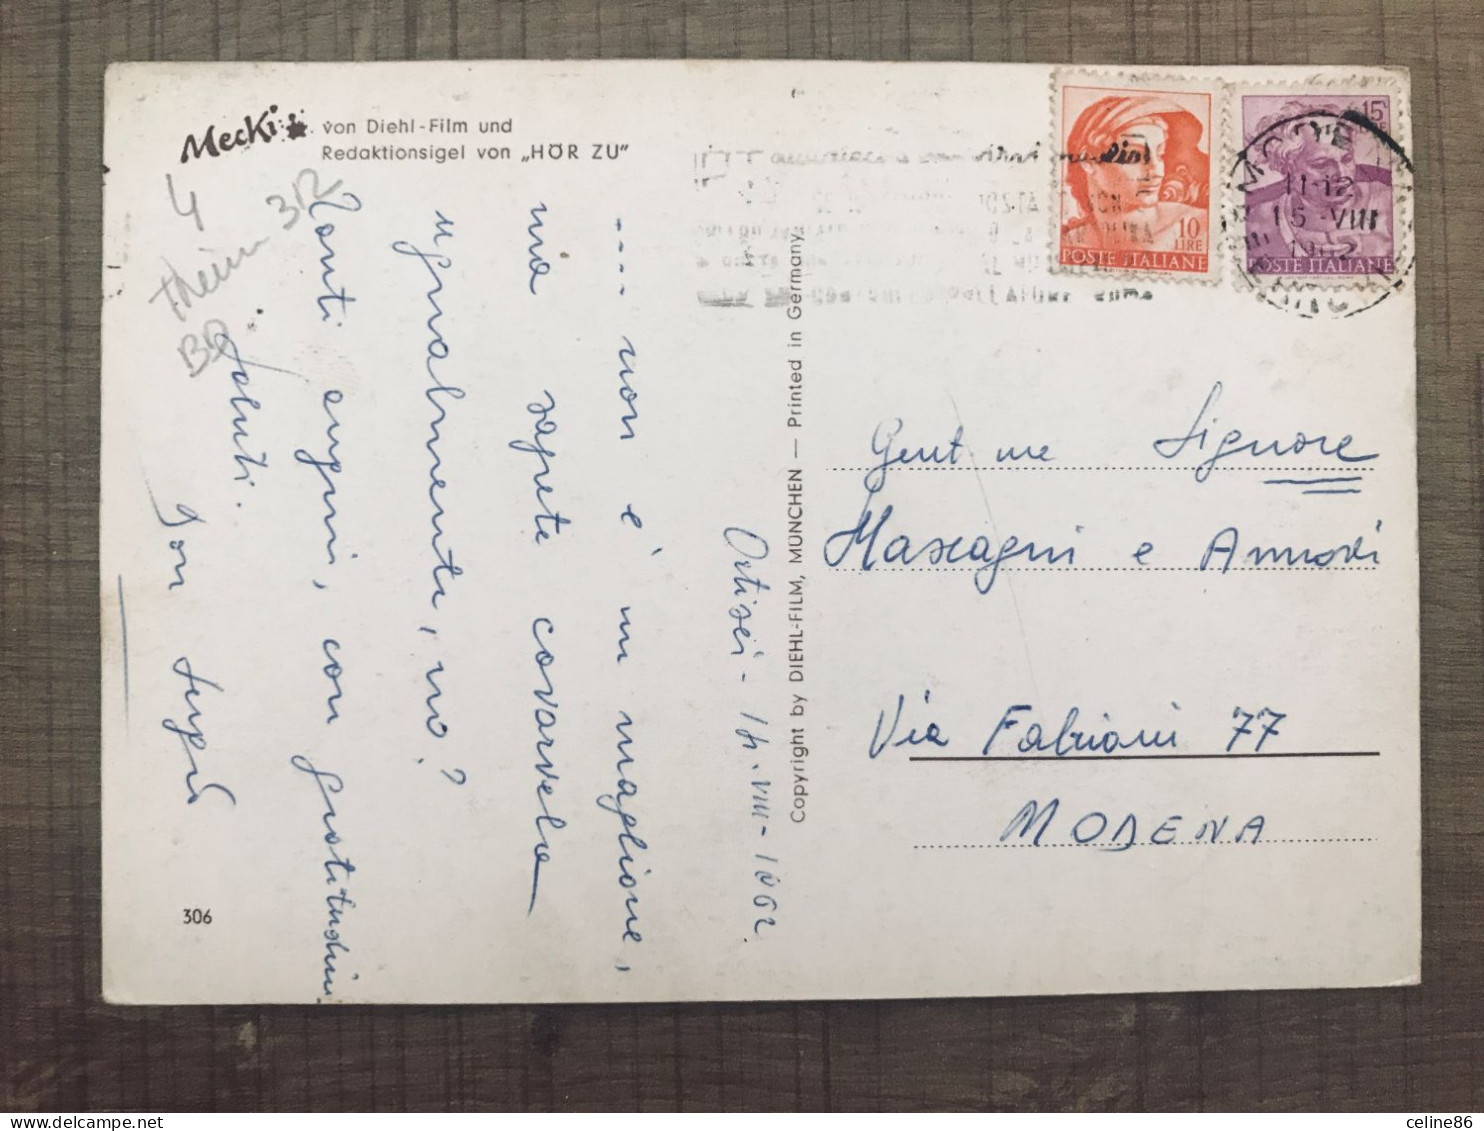 Mecki
von Diehl-Film und
Redaktionsigel von „HÖR ZU"
4
3D
BD
Ortisei - 14.VIII-1962.
.... non è un maglione,
ma sapete cavarvela
ugualmente, no?
Tanti auguri, con gratitudine
Saluti.
Don
306
Copyright by DIEHL-FILM, MÜNCHEN — Printed in Germany
10
LIRE
POSTE ITALIANE
15
POSTE ITALIANE
11-12
15 VIII
1962
Gent me Signore
Mascagni e Annovi
Via Fabriani 77
MODENA
celine86